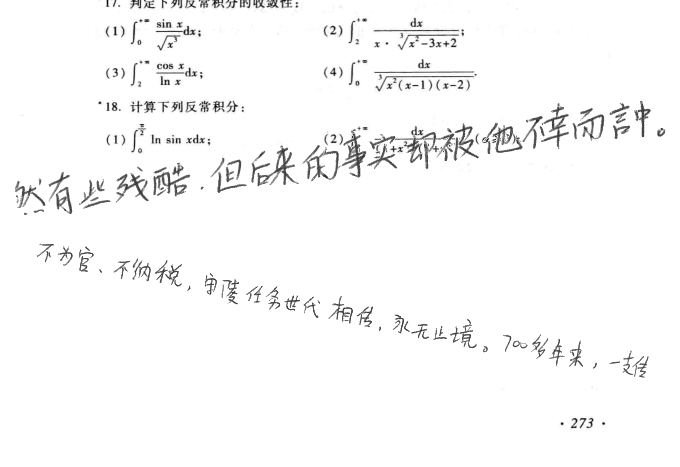 17. 判定下列反常积分的收敛性:
(1) ∫₀^{+∞} sin x/√(x³) dx;
(2) ∫₂^{+∞} dx/(x·∛(x²-3x+2));
(3) ∫₂^{+∞} cos x/ln x dx;
(4) ∫₀^{+∞} dx/∛(x²(x-1)(x-2)).
*18. 计算下列反常积分:
(1) ∫₀^{π/2} ln sin xdx;
(2)
然有些残酷.但后来的事实却被他不幸而言中。
不为官、不纳税,守陵任务世代相传,永无止境。700多年来,一支传
·273·